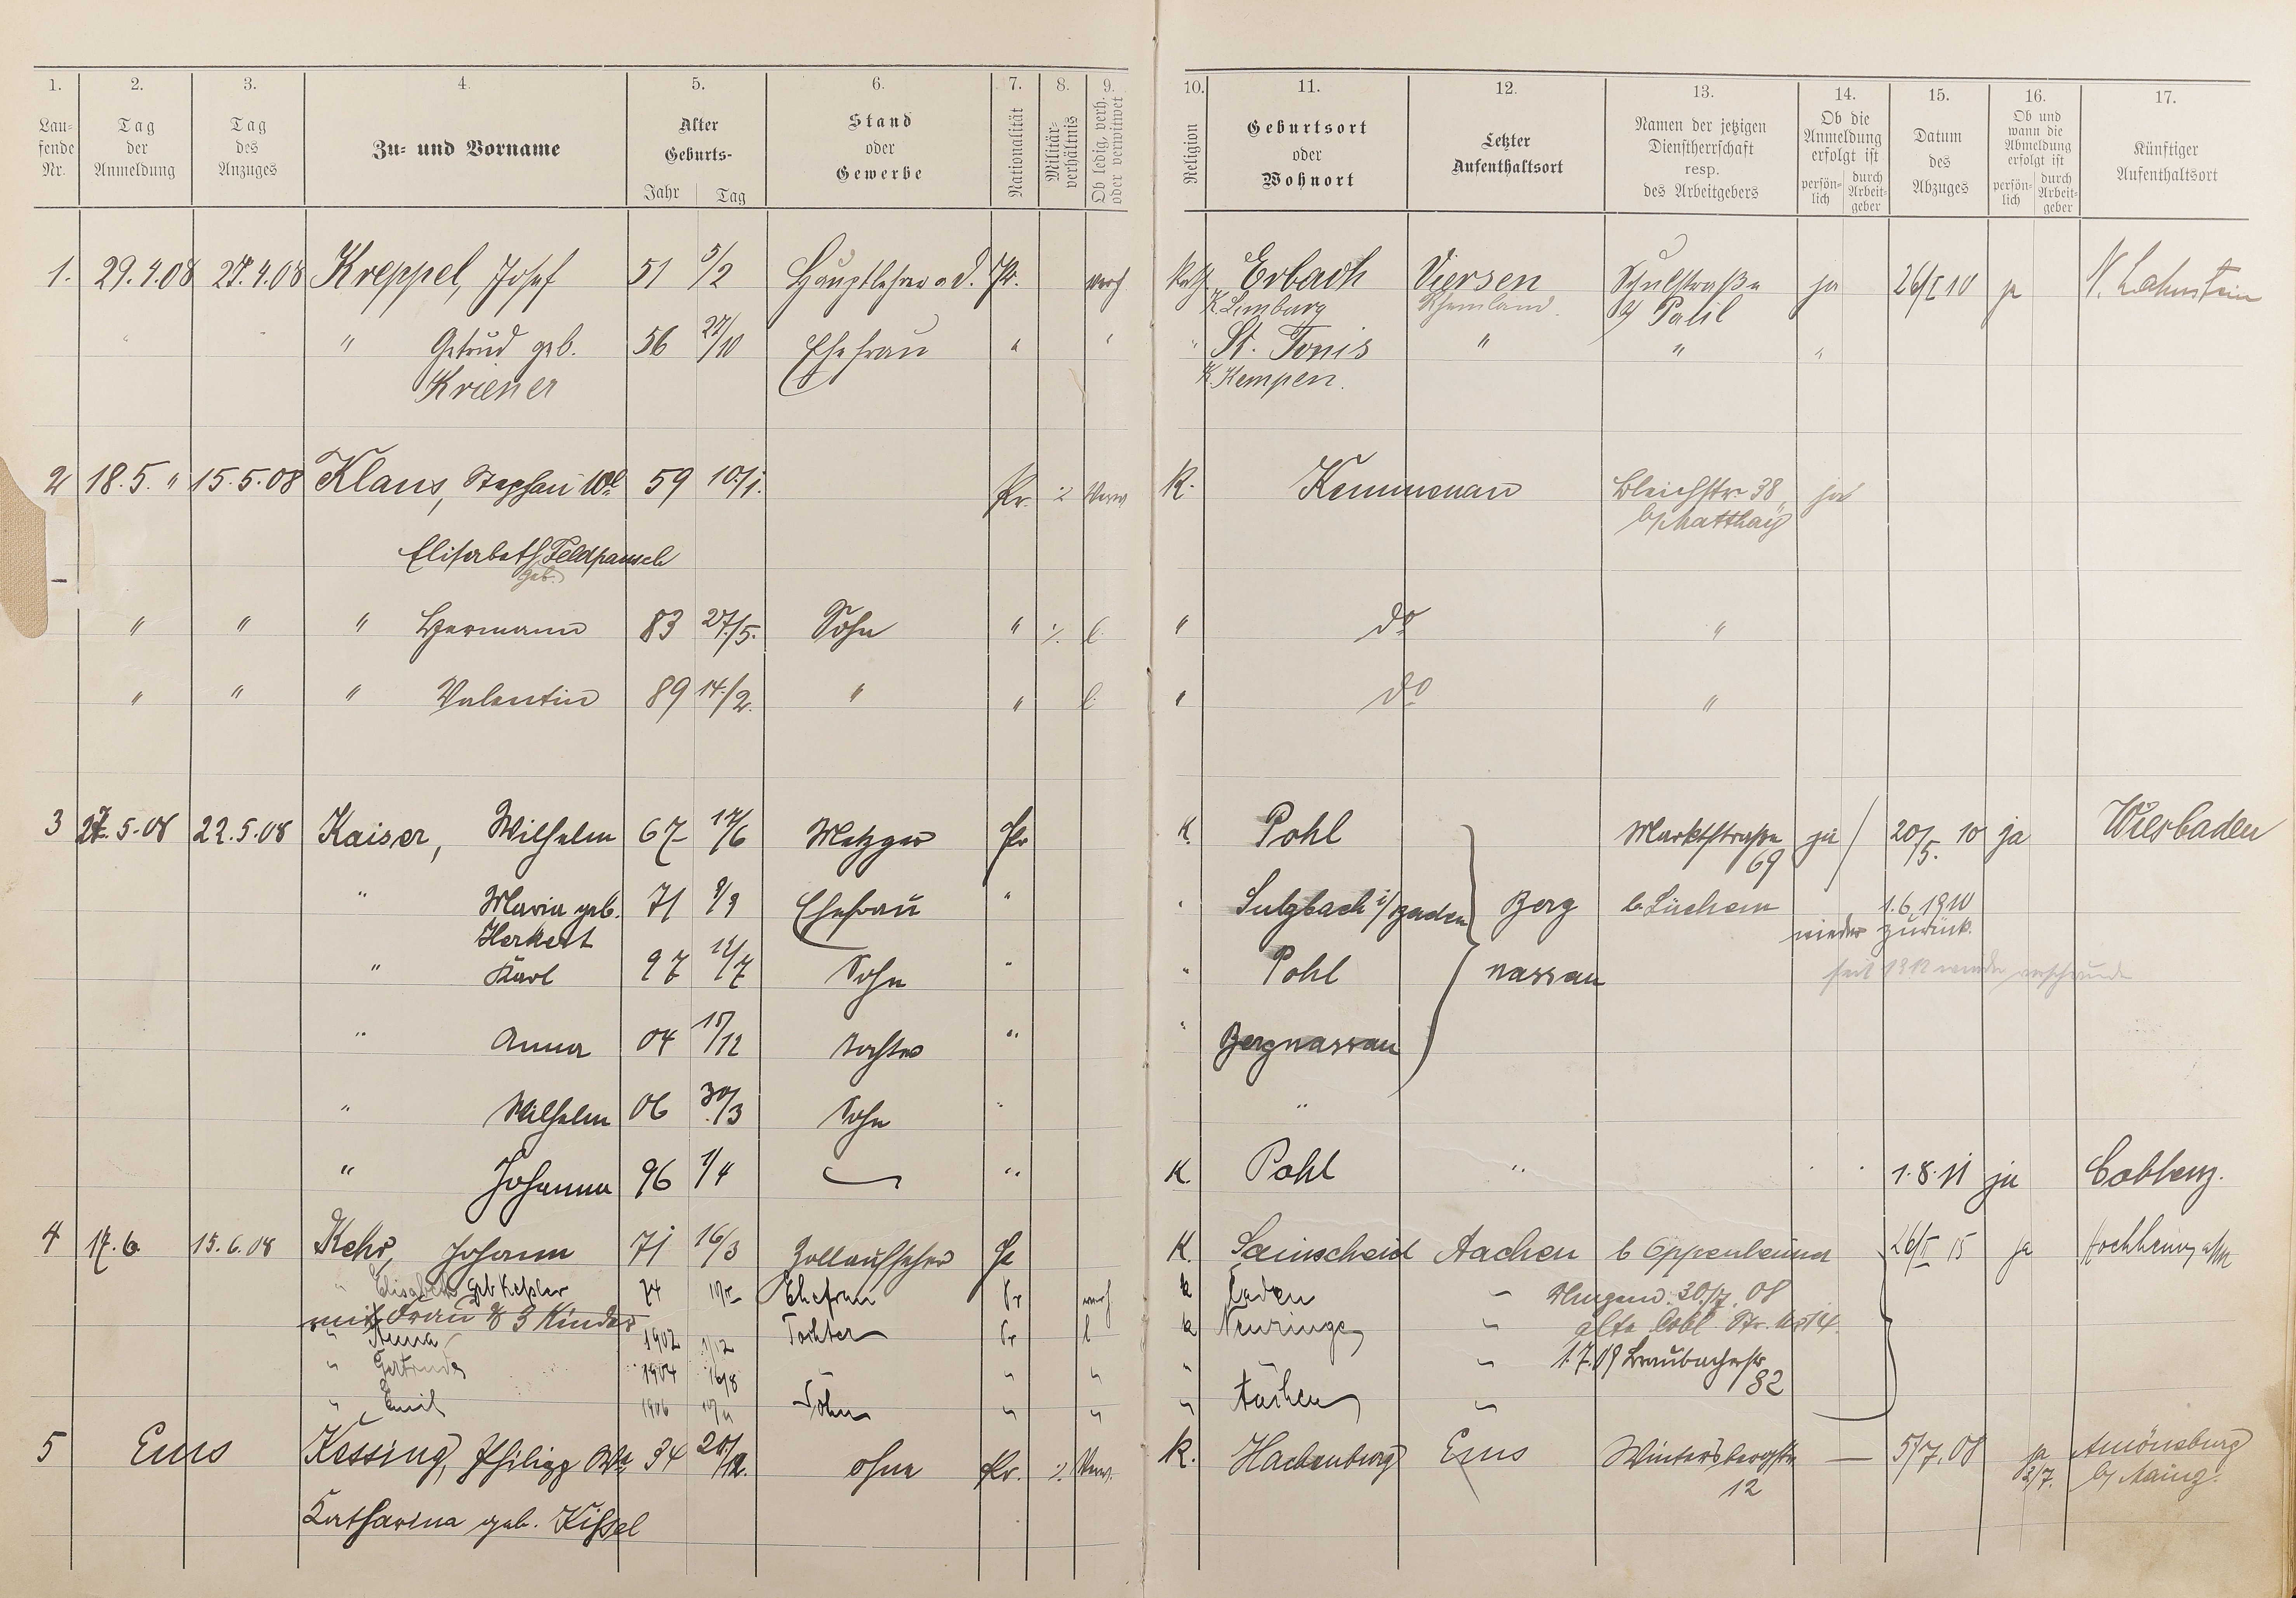 1. 2. 3. 4. 5. 6. 7. 8. 9. 10. 11. 12. 13. 14. 15. 16. 17.
Lau-
fende
Nr.
Tag
der
Anmeldung
Tag
des
Anzuges
Zu- und Vorname
Alter
Geburts-
Jahr Tag
Stand
oder
Gewerbe
Nationalität
Militär-
verhältnis
Ob ledig, verh.
oder verwitwet
Religion
Geburtsort
oder
Wohnort
Letzter
Aufenthaltsort
Namen der jetzigen
Dienstherrschaft
resp.
des Arbeitgebers
Ob die
Anmeldung
erfolgt ist
persön-
lich
durch
Arbeit-
geber
Datum
des
Abzuges
Ob und
wann die
Abmeldung
erfolgt ist
persön-
lich
durch
Arbeit-
geber
Künftiger
Aufenthaltsort
1. 29.4.08 27.4.08 Kreppel, Josef 51 5/2 Hauptlehrer a.D. Pr. verh Kath Erbach Viersen Schulstraße ja 26/I 10 ja N. Lahnstein
K. Limburg Rheinland.
" Getrud geb. 56 27/10 Ehefrau " " " St. Tonis " " "
Kriener K. Kempen.
2 18.5. " 15.5.08 Klaus, Stephan Wwe 59 10/1. Pr. ./. Verw K. Kemmenau Bleichstr 38, ja
b/ Matthäy
Elisabeth Feldpausch
geb.
" " " Hermann 83 27./5. Sohn " ./. l. " do "
" " " Valentin 89 14./2. " " l. " do "
3 27.5.08 22.5.08 Kaiser, Wilhelm 67 12/6 Metzger Pr K. Pohl Marktstraße ja 20/5. 10 ja Wiesbaden
69
" Maria geb. 71 9/9 Ehefrau " " Sulzbach i/Baden Berg 1.6.1910
Herkert wieder zurück.
" Karl 97 12/7 Sohn " " Pohl nassau seit 1912 wieder
" Anna 04 15/12 Tochter " " Bergnassau
" Wilhelm 06 30/3 Sohn " "
" Johanna 96 1/4 " K. Pohl " 1.8.11 ja Coblenz.
4 17.6. 15.6.08 Kehr, Johann 71 16/3 Zollaufseher Pr K. Sainscheid Aachen b Oppenheimer 26/I 15 ja
" Elisabeth geb Keßler 74 Ehefrau Pr verh k Caden " 30/7. 08
mit Frau & 3 Kinder
" Anna 1902 1/12 Tochter Pr l k " alte Cobl. Str. No 14.
" Gertrude 1904 16/8 " " " " 1.7.09 Braubacherstr
82
" Emil 1906 Sohn " " " Aachen "
5 Ems Kessing, Philipp Wwe 34 20./12. ohne Pr. ./. Verw. K. Hachenburg Ems Wintersbergstr — 5/7.08 ja Amöneburg
12 3/7. b/ Mainz.
Katharina geb. Kissel